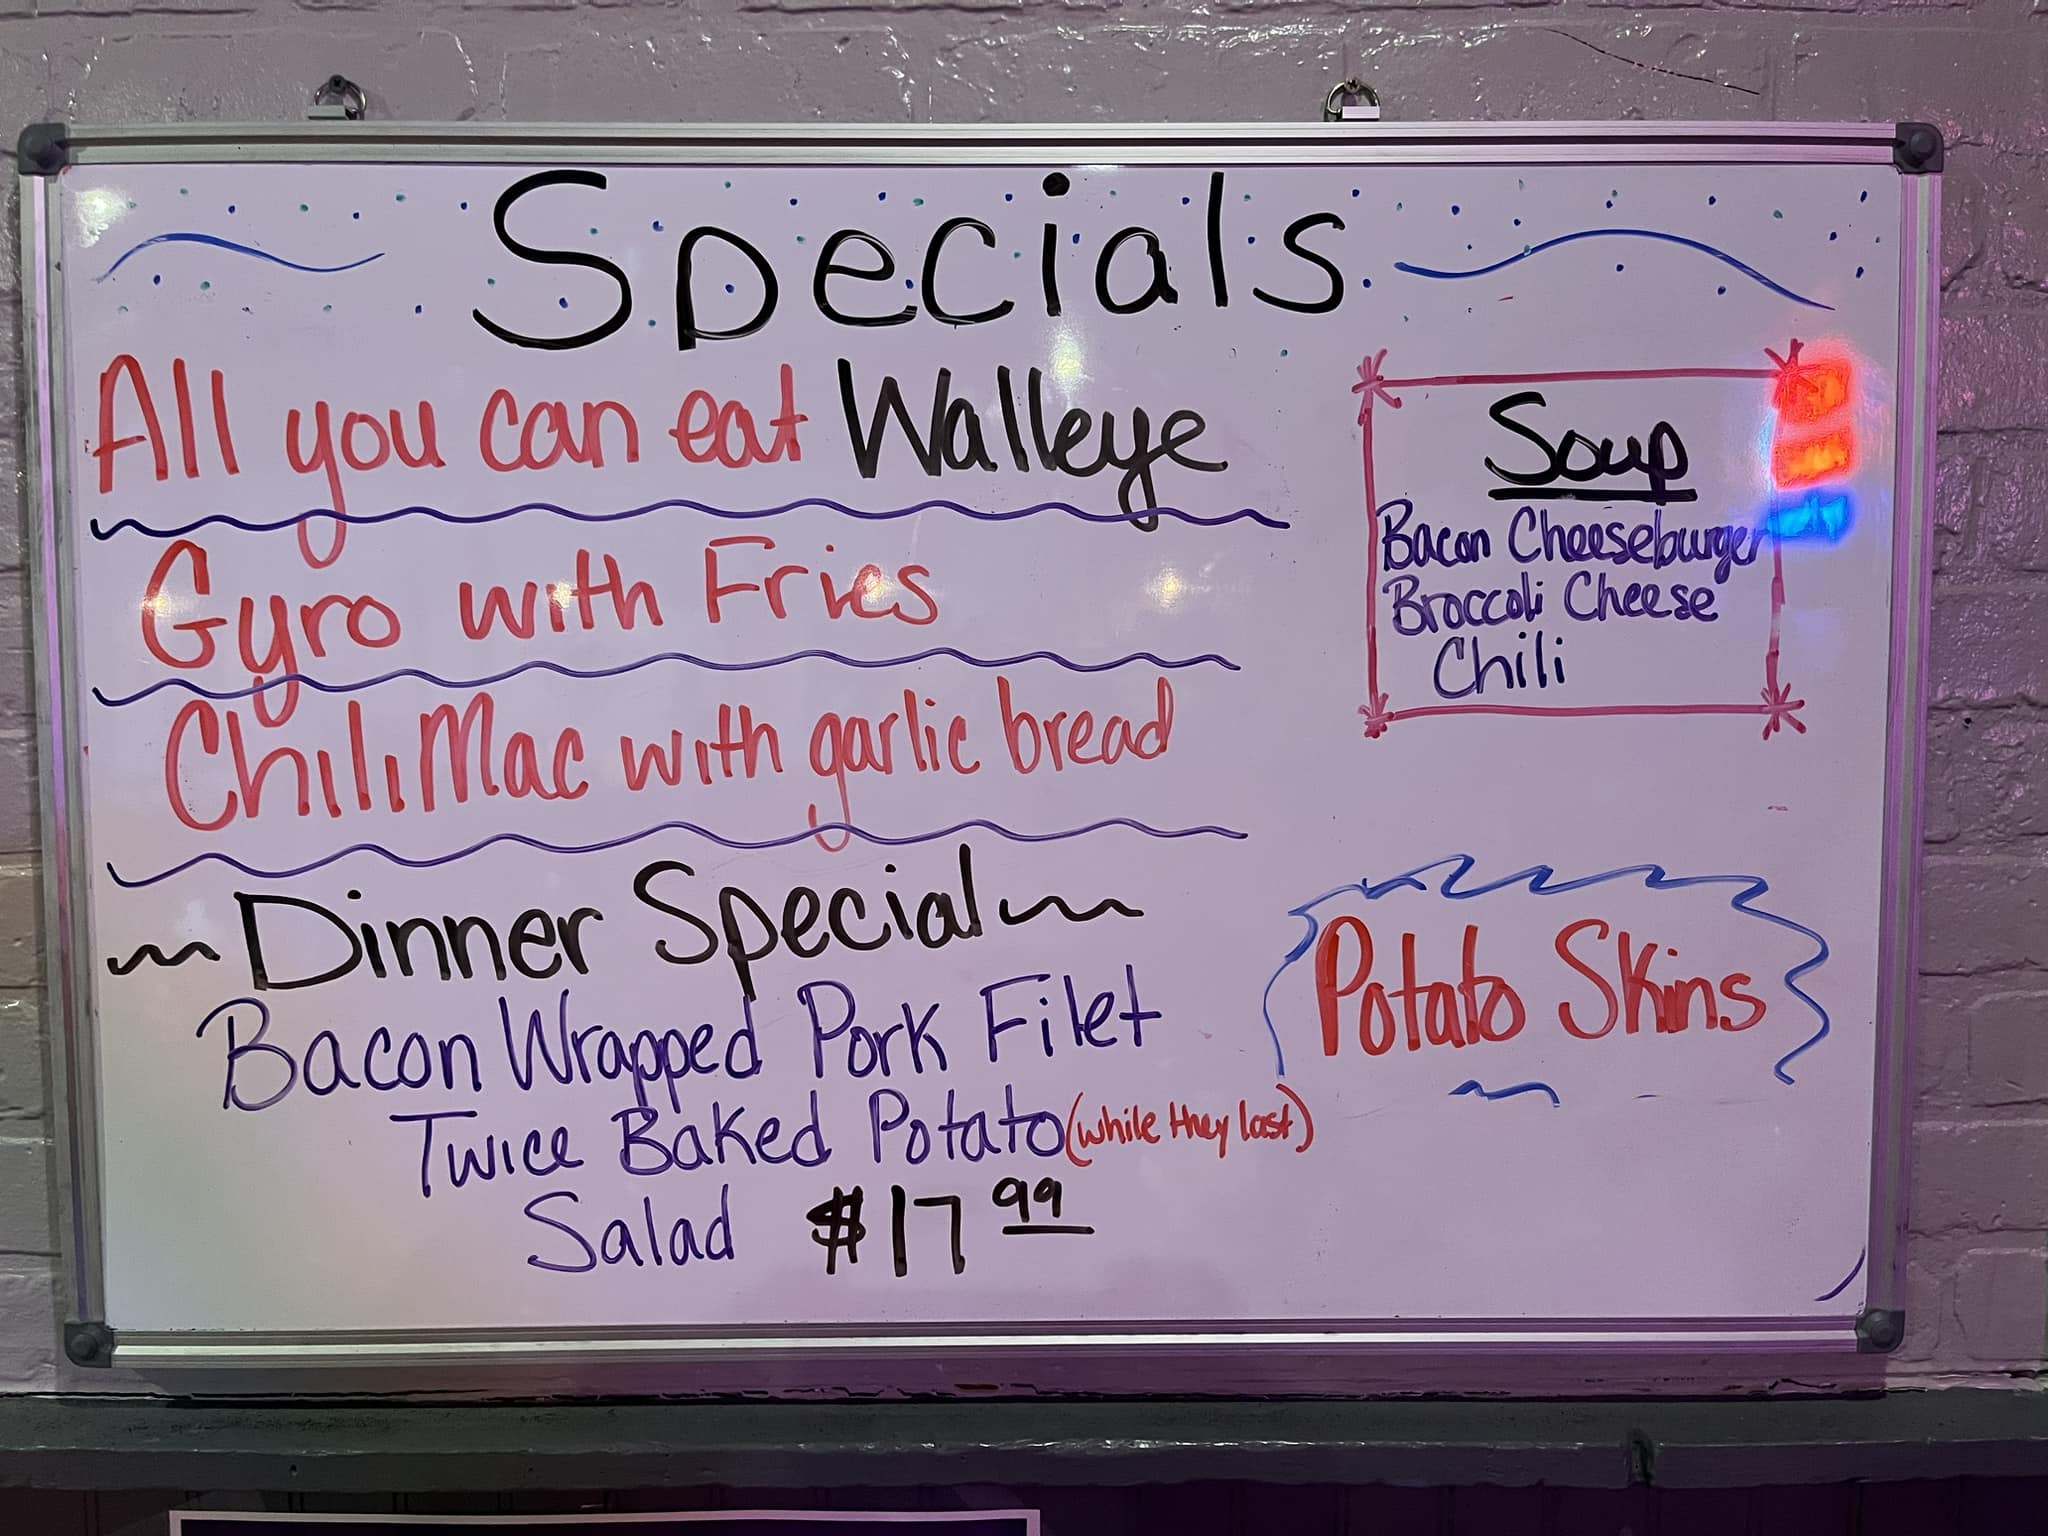 Specials
All you can eat Walleye
Gyro with Fries
Chili Mac with garlic bread
Dinner Special
Bacon Wrapped Pork Filet
Twice Baked Potato (while they last)
Salad $17 99
Soup
Bacon Cheeseburger
Broccoli Cheese
Chili
Potato Skins